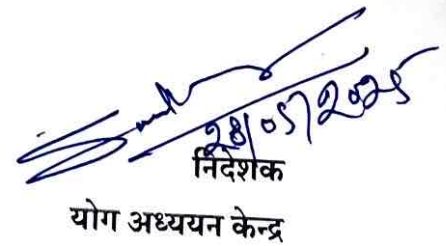 28/05/2025
निदेशक
योग अध्ययन केन्द्र